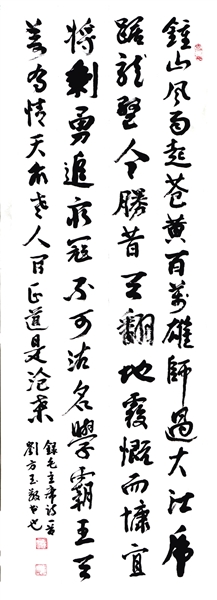 鍾山風雨起蒼黃百萬雄師過大江虎
踞龍盤今勝昔天翻地覆慨而慷宜
將剩勇追窮寇不可沽名學霸王天
若有情天亦老人間正道是滄桑
錄毛主席詩一首
劉方玉敬書也